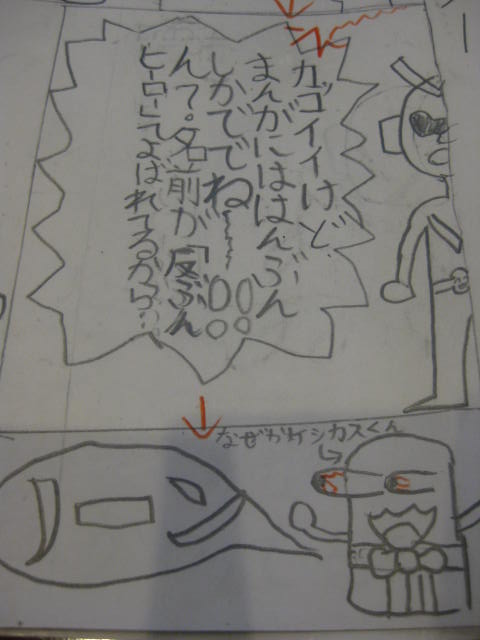 カッコイイけど
まんがにははんぶん
しかででね〜!!
んて。名前が「反ぶん
ヒーロー」てよばれてるから…
なぜかケシカスくん